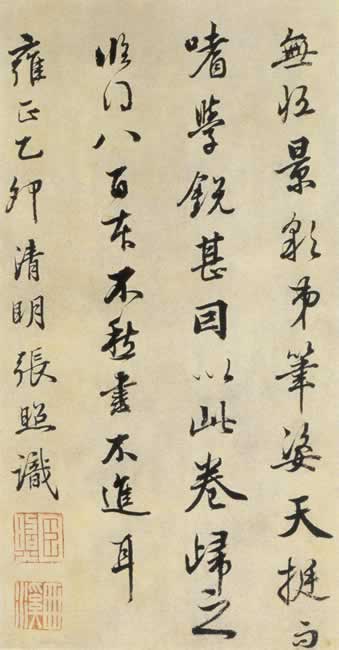 無景弟筆姿天挺而
嗜學銳甚因以此卷歸之
臨八百本不愁書不進耳
雍正乙卯清明張照識